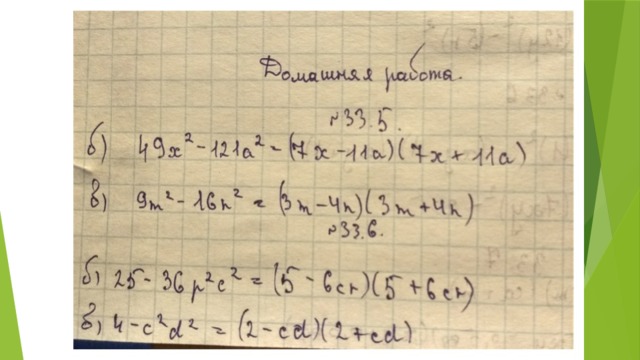 Домашняя работа.
№33.5.
б) 49x² - 121a² = (7x - 11a)(7x + 11a)
в) 9m² - 16n² = (3m - 4n)(3m + 4n)
№33.6.
б) 25 - 36p²c² = (5 - 6cp)(5 + 6cp)
в) 4 - c²d² = (2 - cd)(2 + cd)